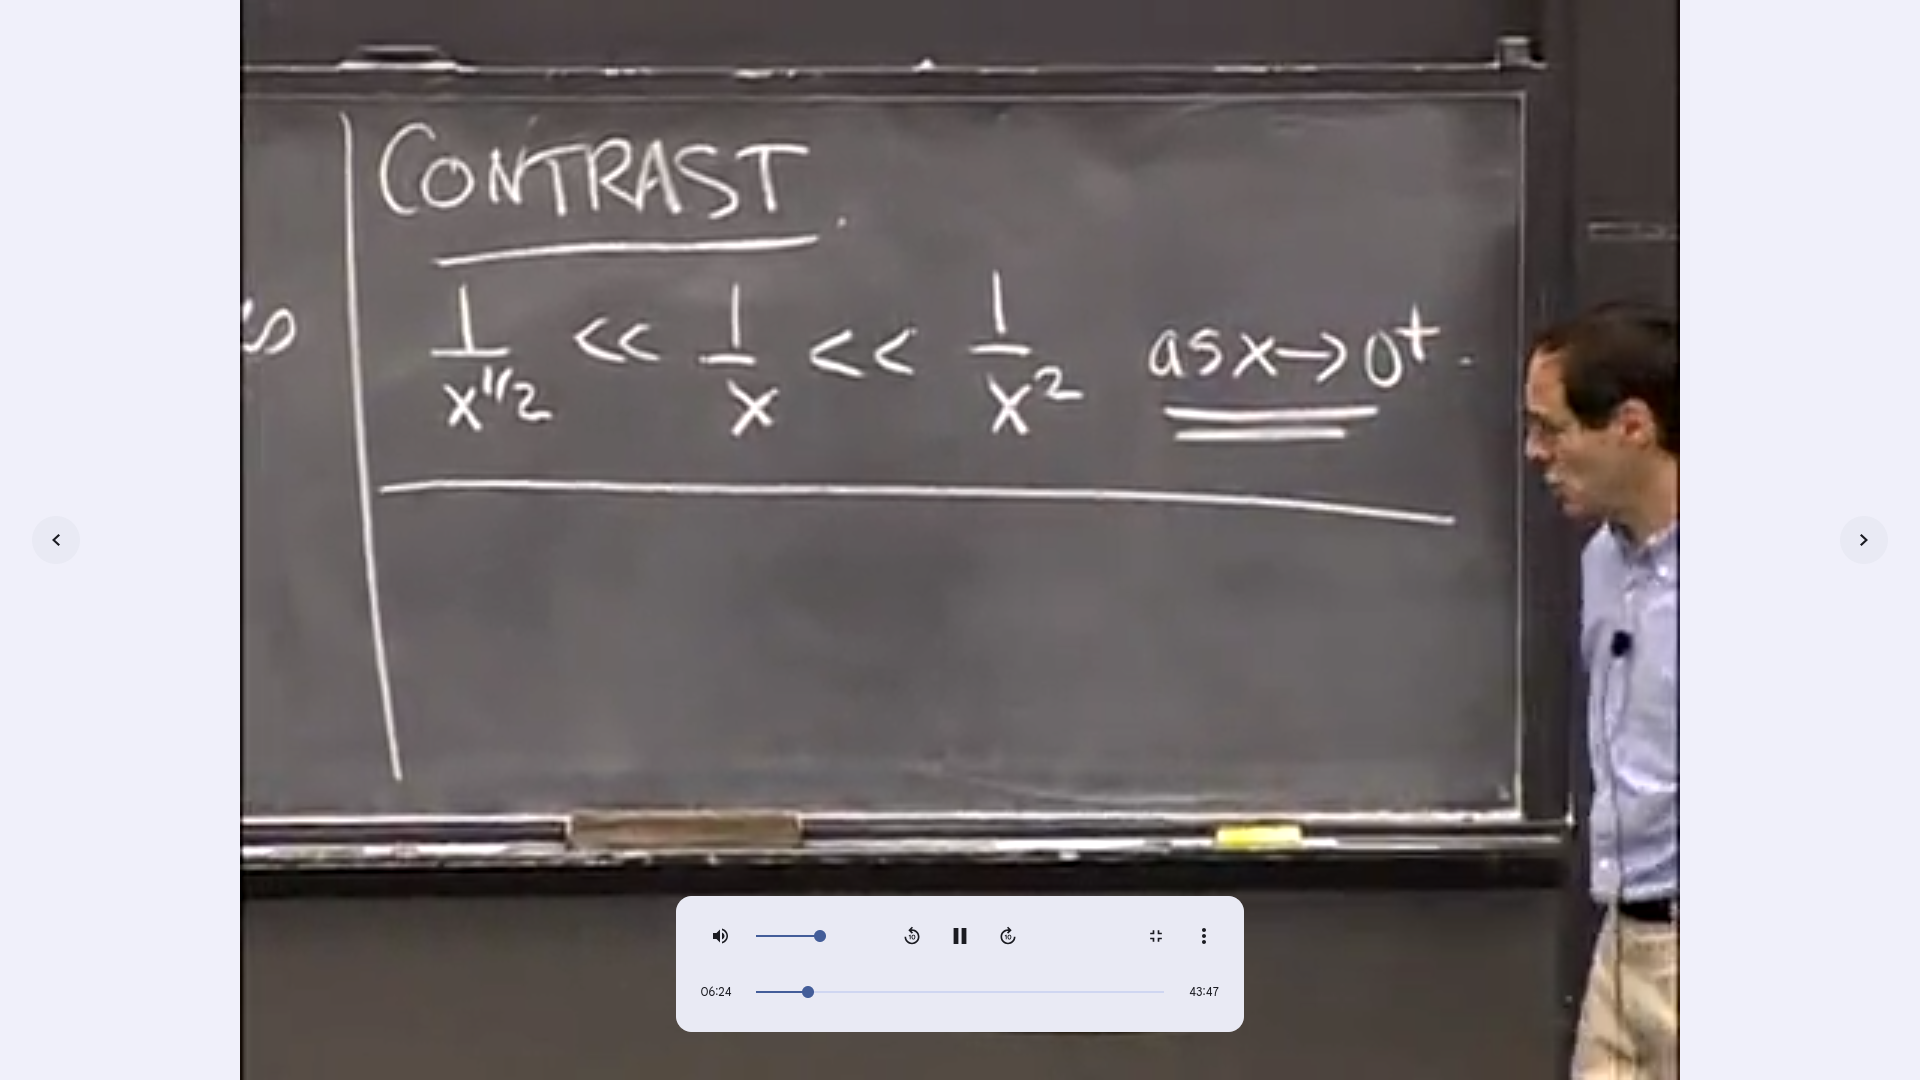 CONTRAST
1/x^1/2 << 1/x << 1/x^2 as x → 0^+
06:24
43:47